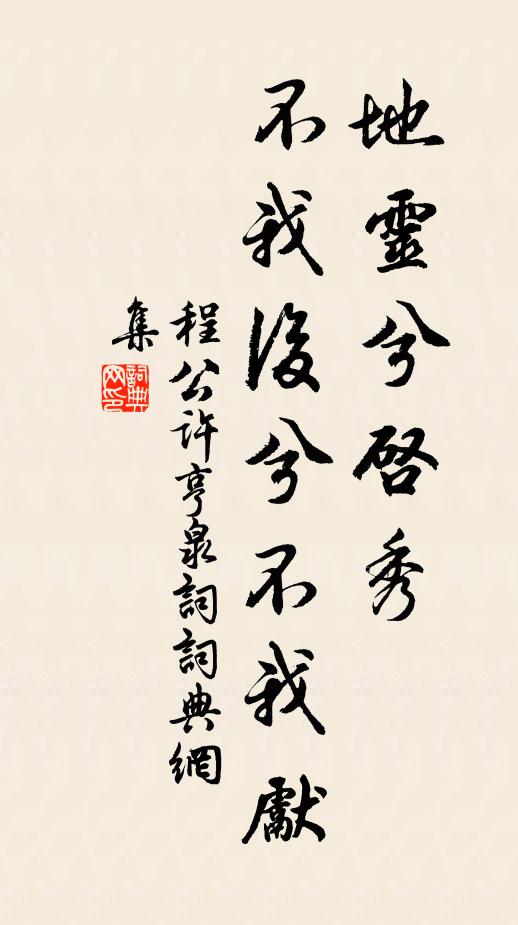 地靈兮啓秀
不我後兮不我獻
程公許亨泉詞詞典網
集
詞典网印